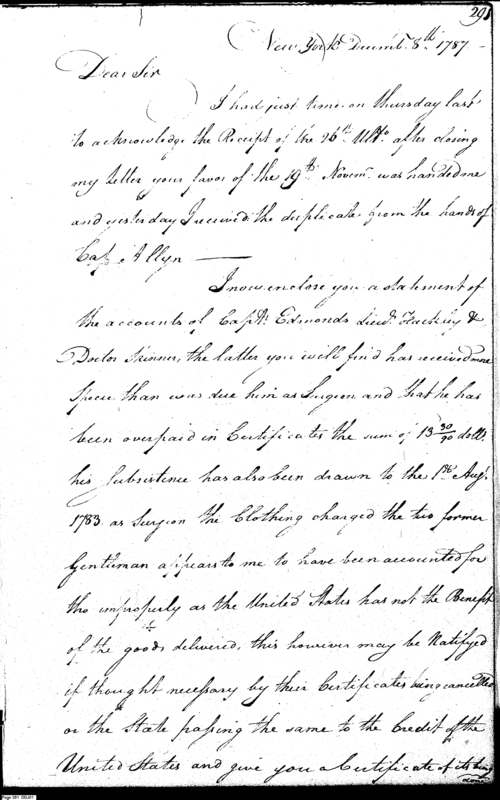 291
New York Decemb. 8th 1787
Dear Sir
I had just time on thursday last
to acknowledge the Receipt of the 26th Ulto. after closing
my letter your favor of the 19th Novemr. was handed me
and yesterday I received the duplicate from the hands of
Cap. Allyn
I now enclose you a statement of
the accounts of Capt. Edmonds Lieut. Hackley &
Doctor Skinner, the latter you will find has received more
Specie than was due him as Surgeon and that he has
been overpaid in Certificates the sum of 13 30/90 dolls.
his Subsistence has also been drawn to the 1st Augt.
1783. as Surgeon the Clothing charged the two former
Gentleman appears to me to have been accounted for
tho improperly as the United States has not the Benefit
of the goods delivered, this however may be Ratifyed
if thought necessary by their Certificates being cancelled
or the State passing the same to the Credit of the
United States and give you a Certificate of its being
done
Page 291 DDJ01